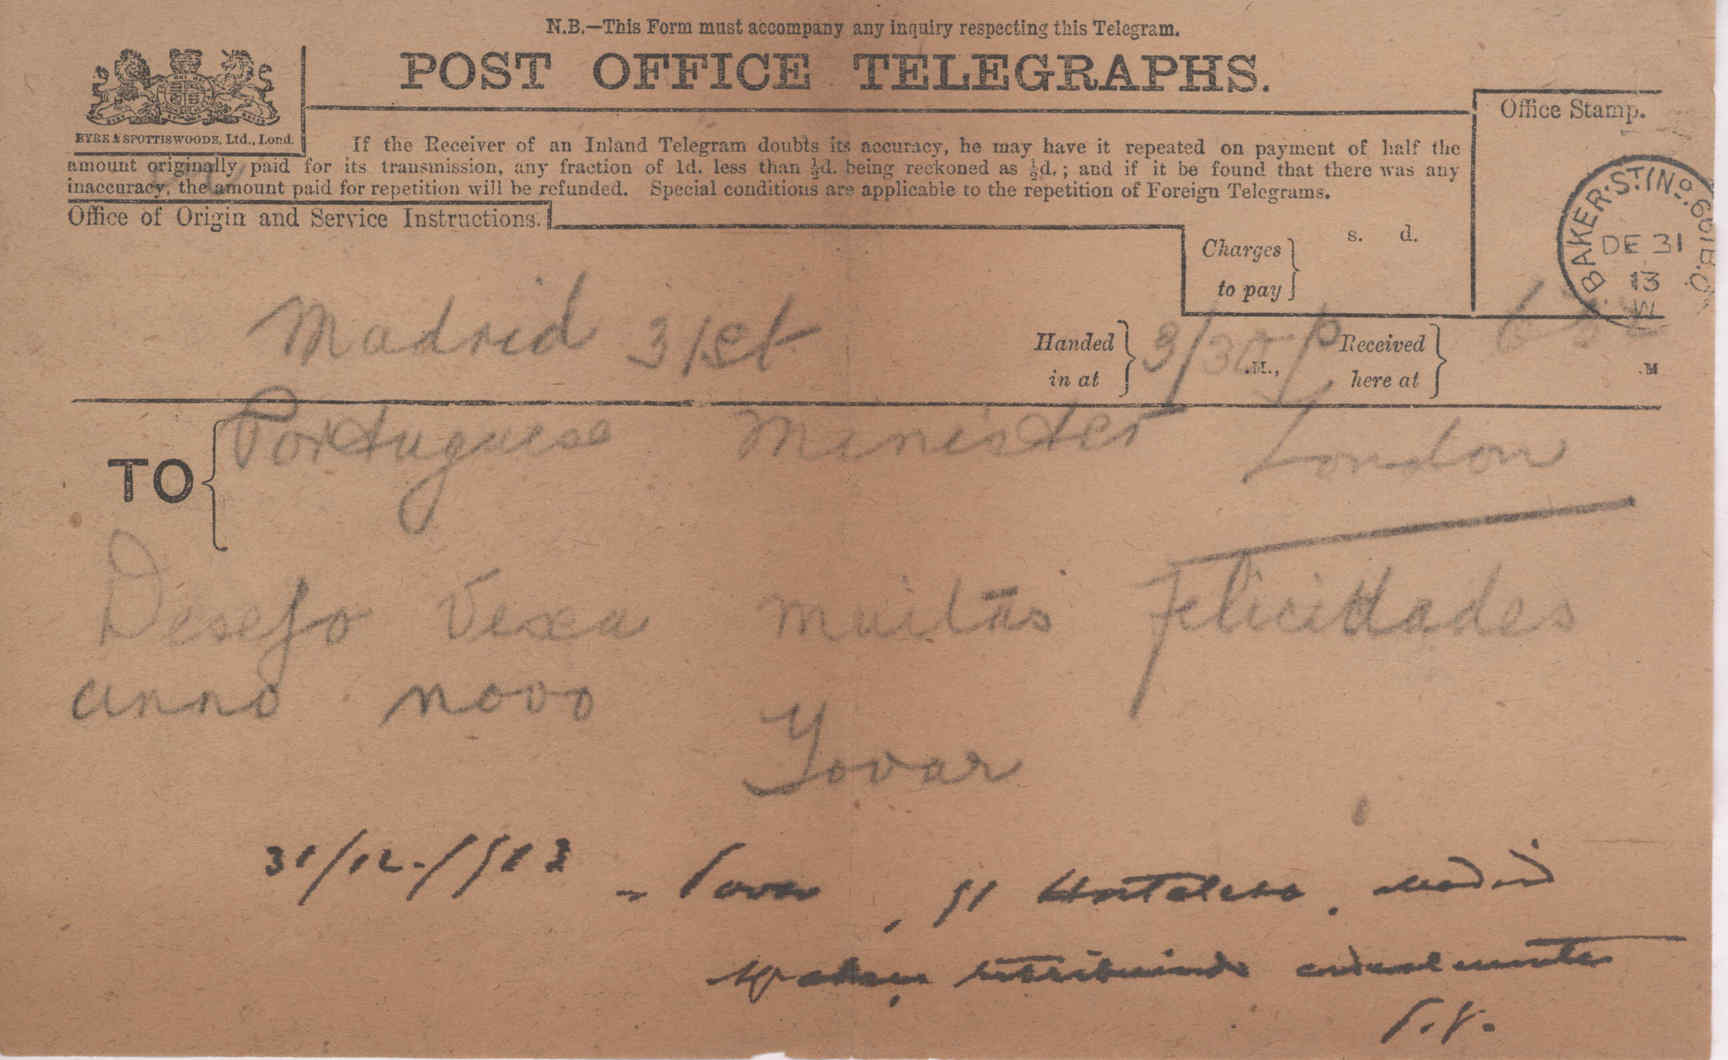 N.B.—This Form must accompany any inquiry respecting this Telegram.
POST OFFICE TELEGRAPHS.
EYRE & SPOTTISWOODE, Ltd., Lond.
If the Receiver of an Inland Telegram doubts its accuracy, he may have it repeated on payment of half the
amount originally paid for its transmission, any fraction of 1d. less than ½d. being reckoned as ½d.; and if it be found that there was any
inaccuracy, the amount paid for repetition will be refunded. Special conditions are applicable to the repetition of Foreign Telegrams.
Office Stamp.
BAKER·ST(No.
DE 31
13
Office of Origin and Service Instructions.
Charges to pay } s. d.
Madrid 31st
Handed in at } 3/30 p .M.,
Received here at } .M
TO { Portuguese Minister London
Desefo Vexa muitas Felicidades
anno novo
Yovar
31/12-/913 - Tovar, 51 Hortaleza. Madrid
retribuindo cordealmente
T.G.